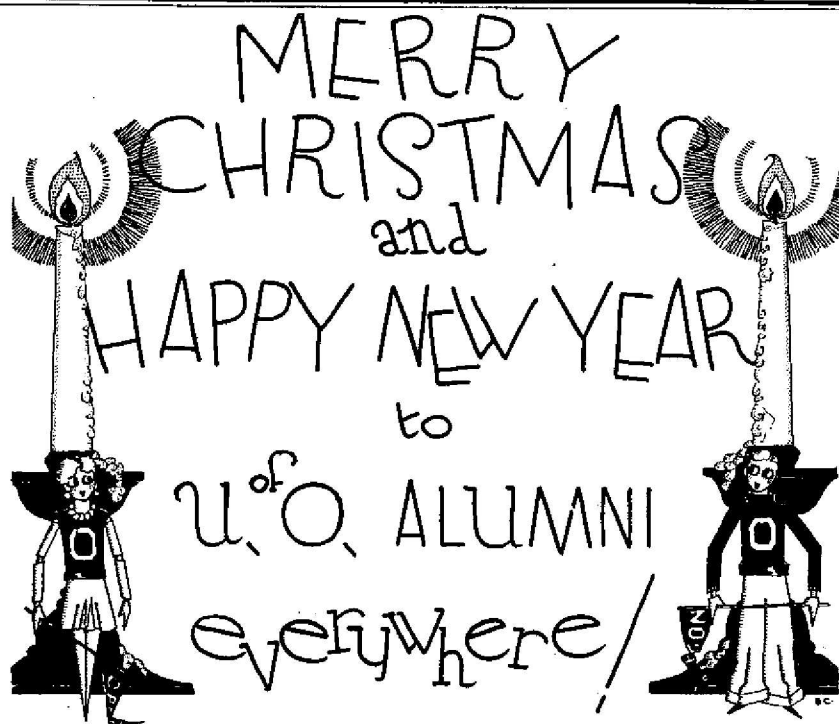 MERRY
CHRISTMAS
and
HAPPY NEW YEAR
to
U. of O. ALUMNI
everywhere!
O
O
B.C.